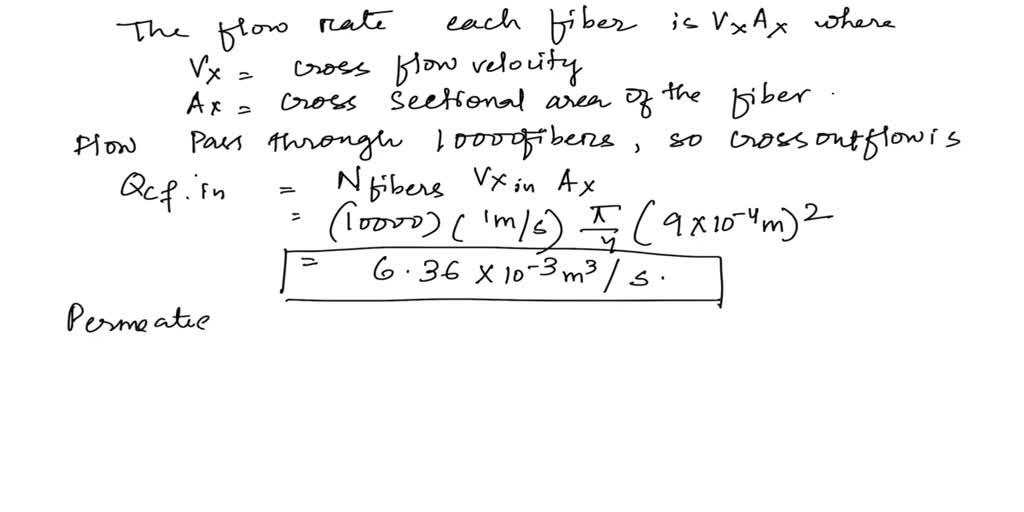 The flow rate each fiber is VxAx where
Vx = cross flow velocity
Ax = cross sectional area of the fiber.
Flow Pass through 10000 fibers, so cross out flow is
Qcf.in = Nfibers Vx in Ax
= (10000) (1m/s) π/4 (9 x 10⁻⁴m)²
= 6.36 x 10⁻³ m³/s.
Permeate